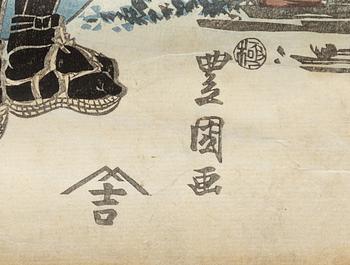 極
豊國画
吉